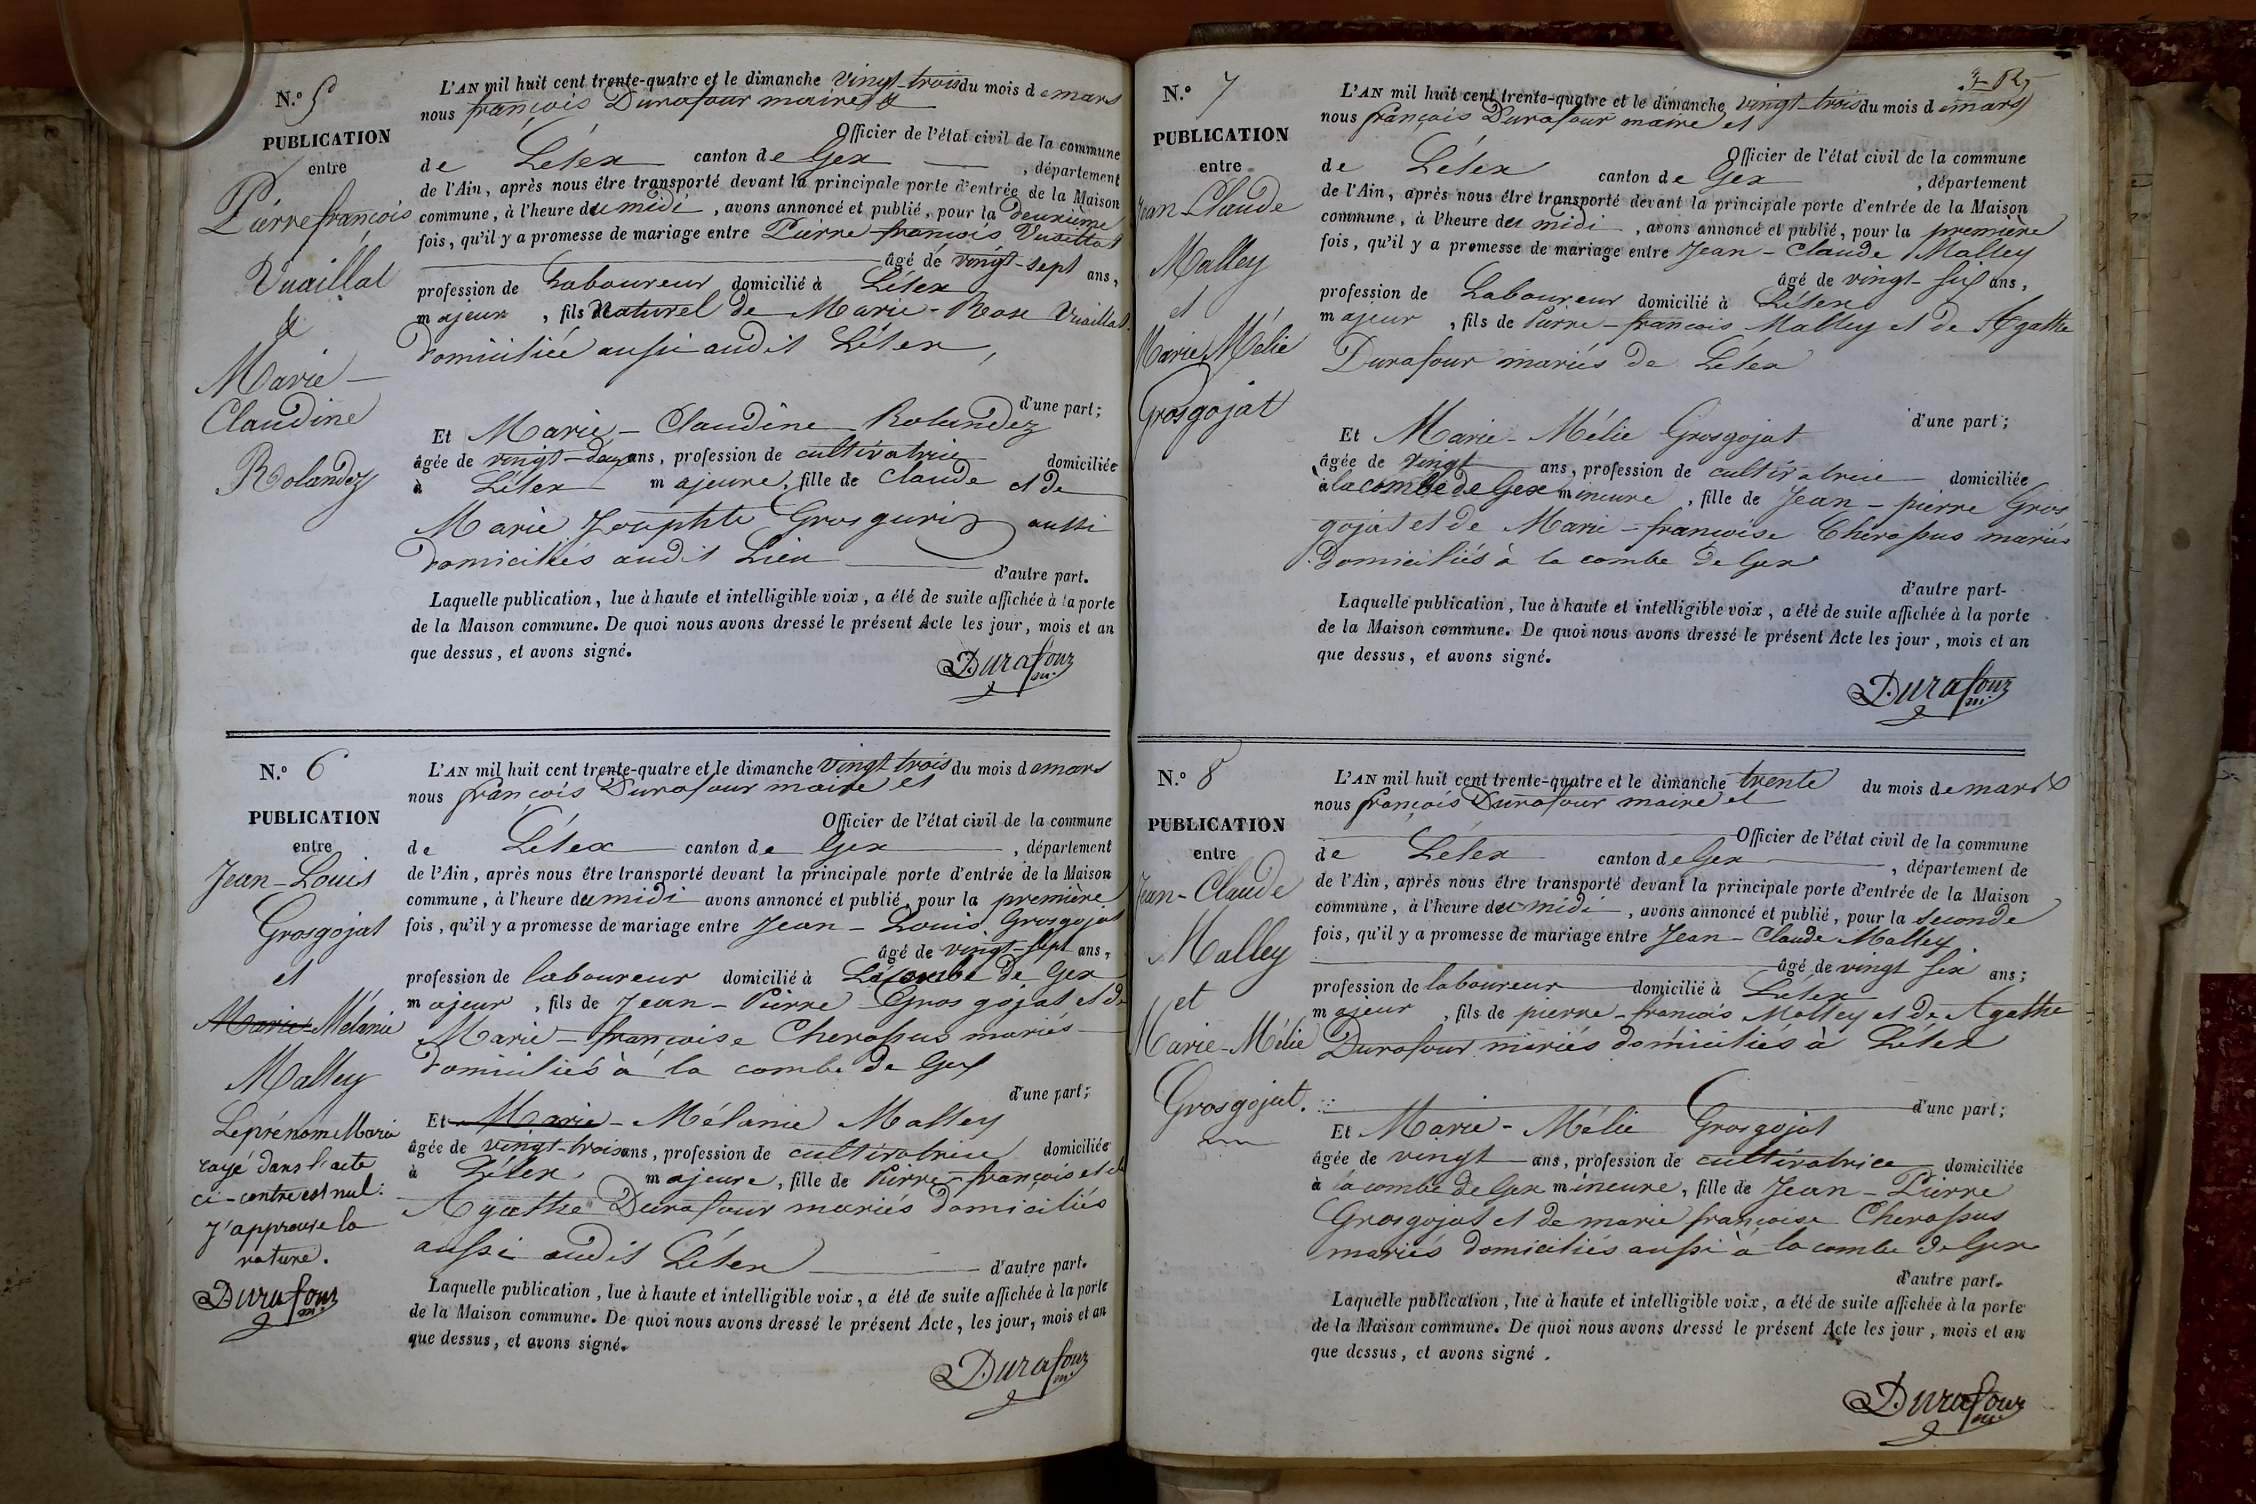 N.º 5
PUBLICATION
entre
Pierre françois
Vuaillat
&
Marie-
Claudine
Rolandez
L'AN mil huit cent trente-quatre et le dimanche vingt-trois du mois de mars
nous françois Durafour maire &
Officier de l'état civil de la commune
de Lélex canton de Gex, département
de l'Ain, après nous être transporté devant la principale porte d'entrée de la Maison
commune, à l'heure du midi, avons annoncé et publié, pour la deuxième
fois, qu'il y a promesse de mariage entre Pierre françois Vuaillat
âgé de vingt-sept ans,
profession de Laboureur domicilié à Lélex
majeur, fils naturel de Marie-Rose Vuaillat
domiciliée aussi audit Lélex,
d'une part;
Et Marie-Claudine Rolandez
âgée de vingt-deux ans, profession de cultivatrice domiciliée
à Lélex majeure, fille de Claude et de
Marie Josephte Grosgurin aussi
domiciliés audit Lieu
d'autre part.
Laquelle publication, lue à haute et intelligible voix, a été de suite affichée à la porte
de la Maison commune. De quoi nous avons dressé le présent Acte les jour, mois et an
que dessus, et avons signé.
Durafour m.
N.º 6
PUBLICATION
entre
Jean-Louis
Grosgojat
et
Marie Mélanie
Malley
Le prénom Marie
rayé dans l'acte
ci-contre est nul.
J'approuve la
rature.
Durafour m.
L'AN mil huit cent trente-quatre et le dimanche vingt trois du mois de mars
nous françois Durafour maire et
Officier de l'état civil de la commune
de Lélex canton de Gex, département
de l'Ain, après nous être transporté devant la principale porte d'entrée de la Maison
commune, à l'heure du midi avons annoncé et publié, pour la première
fois, qu'il y a promesse de mariage entre Jean-Louis Grosgojat
âgé de vingt-sept ans,
profession de laboureur domicilié à La combe de Gex
majeur, fils de Jean-Pierre Gros gojat et de
Marie-françoise Cherassus mariés
domiciliés à la combe de Gex
d'une part;
Et Marie-Mélanie Malley
âgée de vingt-trois ans, profession de cultivatrice domiciliée
à Lélex, majeure, fille de Pierre-françois et de
Agathe Durafour mariés domiciliés
aussi audit Lélex
d'autre part.
Laquelle publication, lue à haute et intelligible voix, a été de suite affichée à la porte
de la Maison commune. De quoi nous avons dressé le présent Acte, les jour, mois et an
que dessus, et avons signé.
Durafour m.
N.º 7
PUBLICATION
entre
Jean-Claude
Malley
et
Marie Mélie
Grosgojat
L'AN mil huit cent trente-quatre et le dimanche vingt-trois du mois de mars
nous françois Durafour maire et
Officier de l'état civil de la commune
de Lélex canton de Gex, département
de l'Ain, après nous être transporté devant la principale porte d'entrée de la Maison
commune, à l'heure du midi, avons annoncé et publié, pour la première
fois, qu'il y a promesse de mariage entre Jean-Claude Malley
âgé de vingt-six ans,
profession de Laboureur domicilié à Lélex
majeur, fils de Pierre-françois Malley et de Agathe
Durafour mariés de Lélex
d'une part;
Et Marie-Mélie Grosgojat
âgée de vingt ans, profession de cultivatrice domiciliée
à la combe de Gex mineure, fille de Jean-pierre Gros
gojat et de Marie-françoise Cherassus mariés
domiciliés à la combe de Gex
d'autre part-
Laquelle publication, lue à haute et intelligible voix, a été de suite affichée à la porte
de la Maison commune. De quoi nous avons dressé le présent Acte les jour, mois et an
que dessus, et avons signé.
Durafour m.
N.º 8
PUBLICATION
entre
Jean-Claude
Malley
et
Marie-Mélie
Grosgojat.
L'AN mil huit cent trente-quatre et le dimanche trente du mois de mars
nous françois Durafour maire et
Officier de l'état civil de la commune
de Lélex canton de Gex, département de
de l'Ain, après nous être transporté devant la principale porte d'entrée de la Maison
commune, à l'heure du midi, avons annoncé et publié, pour la seconde
fois, qu'il y a promesse de mariage entre Jean-Claude Malley.
âgé de vingt six ans;
profession de laboureur domicilié à Lélex
majeur, fils de pierre-françois Malley et de Agathe
Durafour mariés domiciliés à Lélex
d'une part;
Et Marie-Mélie Grosgojat
âgée de vingt ans, profession de cultivatrice domiciliée
à la combe de Gex mineure, fille de Jean-Pierre
Grosgojat et de marie françoise Cherassus
mariés domiciliés aussi à la combe de Gex
d'autre part.
Laquelle publication, lue à haute et intelligible voix, a été de suite affichée à la porte
de la Maison commune. De quoi nous avons dressé le présent Acte les jour, mois et an
que dessus, et avons signé.
Durafour m.